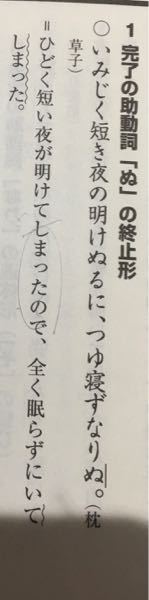 1 完了の助動詞「ぬ」の終止形
○いみじく短き夜の明けぬるに、つゆ寝ずなりぬ。(枕
草子)
=ひどく短い夜が明けてしまったので、全く眠らずにいて
しまった。